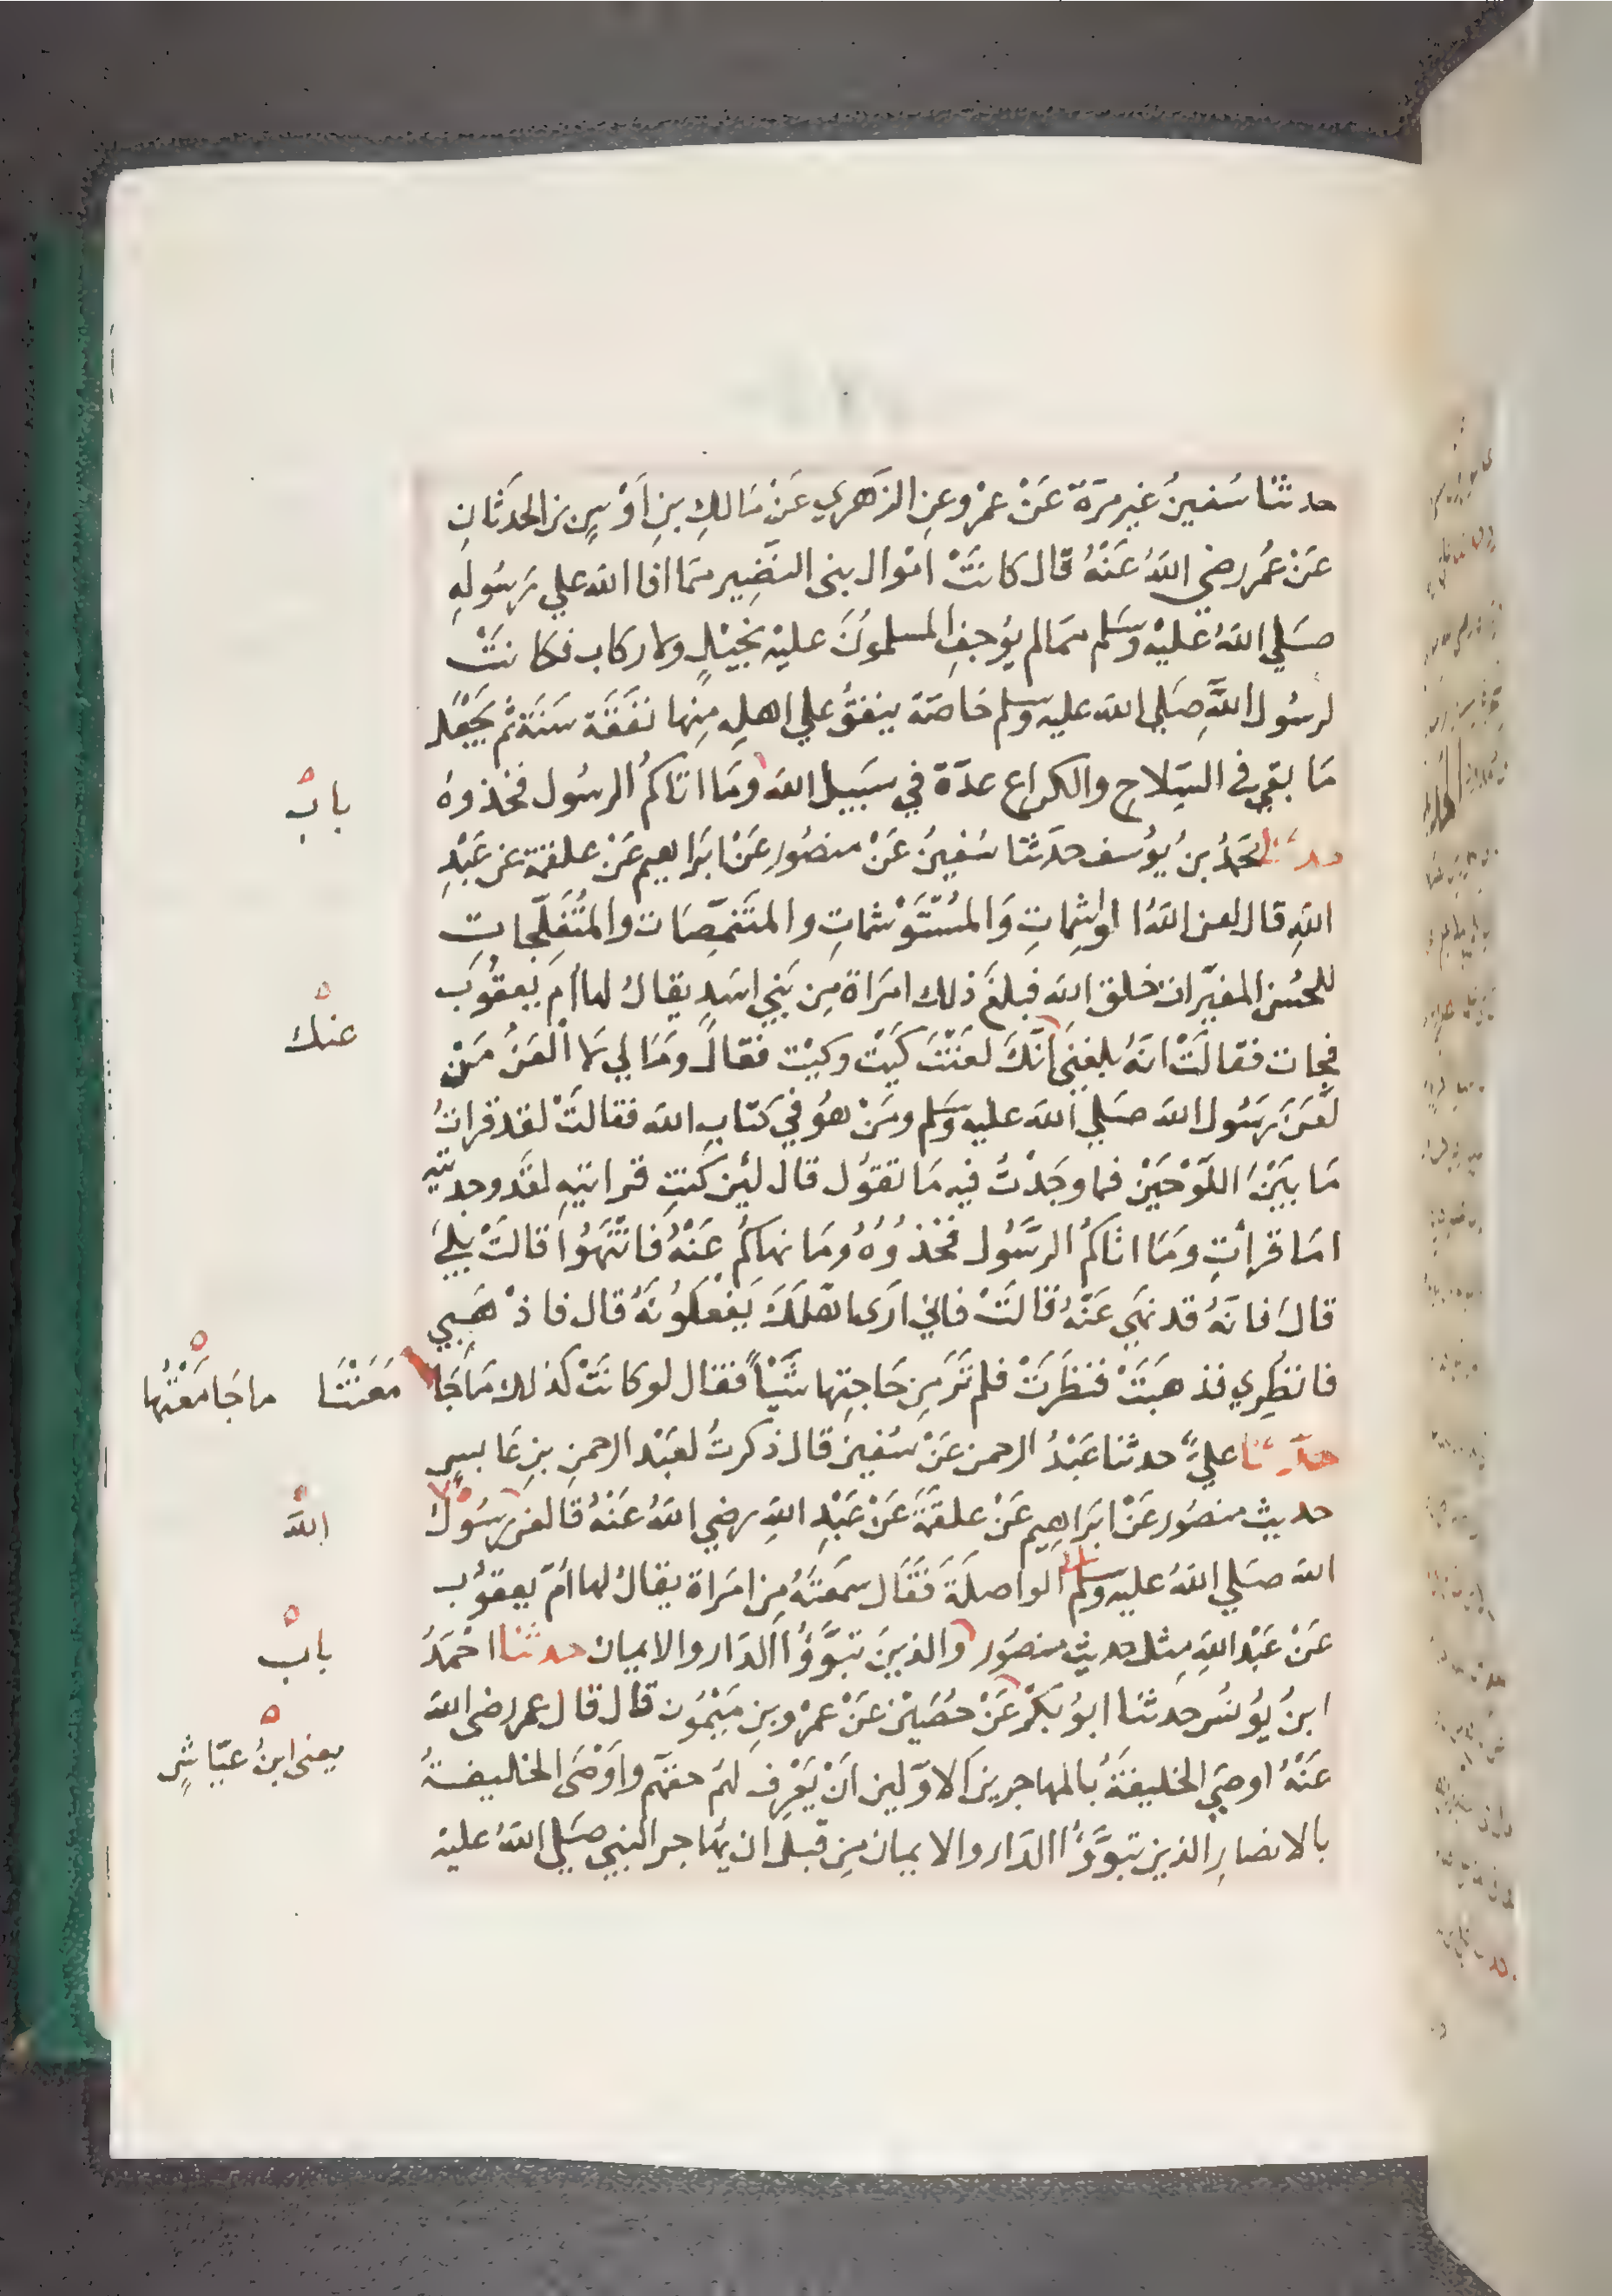 حدثنا سُفينُ غير مرّة عَنْ عمْرٍو عنِ الزهري عَنْ مَالكِ بنِ أَوْسِ بن الحدَثانِ
عَنْ عُمر رضي اللهُ عَنْهُ قال كانَتْ اموال بنى النضِير ممّا افا الله علي رَسُولهِ
صَلي اللهُ عليْهِ وسَلم ممالم يُوجفِ المسلموُنَ عليْهِ بخيْلٍ ولا ركاب فكانتْ
لرسُول اللهِ صَلي الله عليه وسلم خاصّة ينفقُ علي اهلِه مِنها نفَقَة سَنَة ثم يَجْعَل
مَا بقي في السِّلاح والكراع عدّة في سَبيل الله ومَا اتاكمُ الرسُول فخذوهُ
باب
حدثنا محمّدُ بن يوُسف حدَثنا سُفينُ عَنْ منصُور عَنْ ابرَاهيم عَنْ علقمة عن عَبْدِ
اللهِ قال لعن اللهُ الواشِماتِ وَالمُسْتَوْشماتِ والمتنمِّصَات والمُتَفَلِّجاتِ
للحُسْن المغيّرات خلق الله فبلغَ ذلك امرَاة مِن بَنِي اسَدٍ يقالُ لها أم يَعقُوبَ
عنك
فجات فقالَتْ انهُ بلغني أنّكَ لعَنْتَ كَيْت وكيْت فقالَ ومَا لي لا ألْعَنُ مَنْ
لَعَنَ رَسُول الله صَلي الله عليه وسَلم ومَنْ هوُ في كتابِ الله فقالتْ لقد قراتُ
مَا بَيْنَ اللوْحَيْن فما وجَدْتُ فيه مَا تقوُل قال لئِن كنتِ قراتيهِ لقَد وجدتيهِ
امَا قرأتِ ومَا اتاكمُ الرسُول فخذوُهُ ومَا نهاكمُ عَنْهُ فانتَهوُا قالَتْ بلي
قالَ فانهُ قد نهَي عَنْهُ قالَتْ فاني ارَى اهلكَ يَفعَلوُنهُ قال فاذْهَبي
فانظرِي فذهبَتْ فنظرَتْ فلم تَرَ مِن حَاجتِها شَيْأً فقال لو كانَتْ كذلك مَا جَا
مَعَتْنَا ما جَامَعْتُها
حدثنا عليٌّ حدثنا عَبْدُ الرحمن عَنْ سُفين قال ذكرتُ لعَبْد الرحمنِ بنِ عَابسٍ
حديث منصُور عَنْ ابرَاهِيم عَنْ علقَمَة عَنْ عَبْدِ اللهِ رضي اللهُ عَنْهُ قال لعن رسُول
اللهُ
الله صَلي اللهُ عليه وسلم الواصلَة فَقَال سمعَتهُ مِن امرَاة يقالُ لها أمّ يعقوُب
عَنْ عَبْد اللهِ مِثل حديثِ منصُور والذينَ تبَوَّؤُا الدَار والايمان حدثنا احْمَدُ
باب
ابنُ يوُنسَ حدَثنا ابوُ بَكرٍ عَنْ حُصَيْن عَنْ عمرِو بنِ مَيْمُون قال قال عمر رضى الله
يعنى ابنُ عيّاشٍ
عَنْهُ اوصِي الخليفَةَ بالمهاجرين الاوّلين انْ يَعْرِف لهَم حقهم واوْصَى الخليفة
بالانصارِ الذين تبوَّؤُا الدَار والايمان مِن قبل ان يُهاجر النبي صَلي اللهُ عليْه